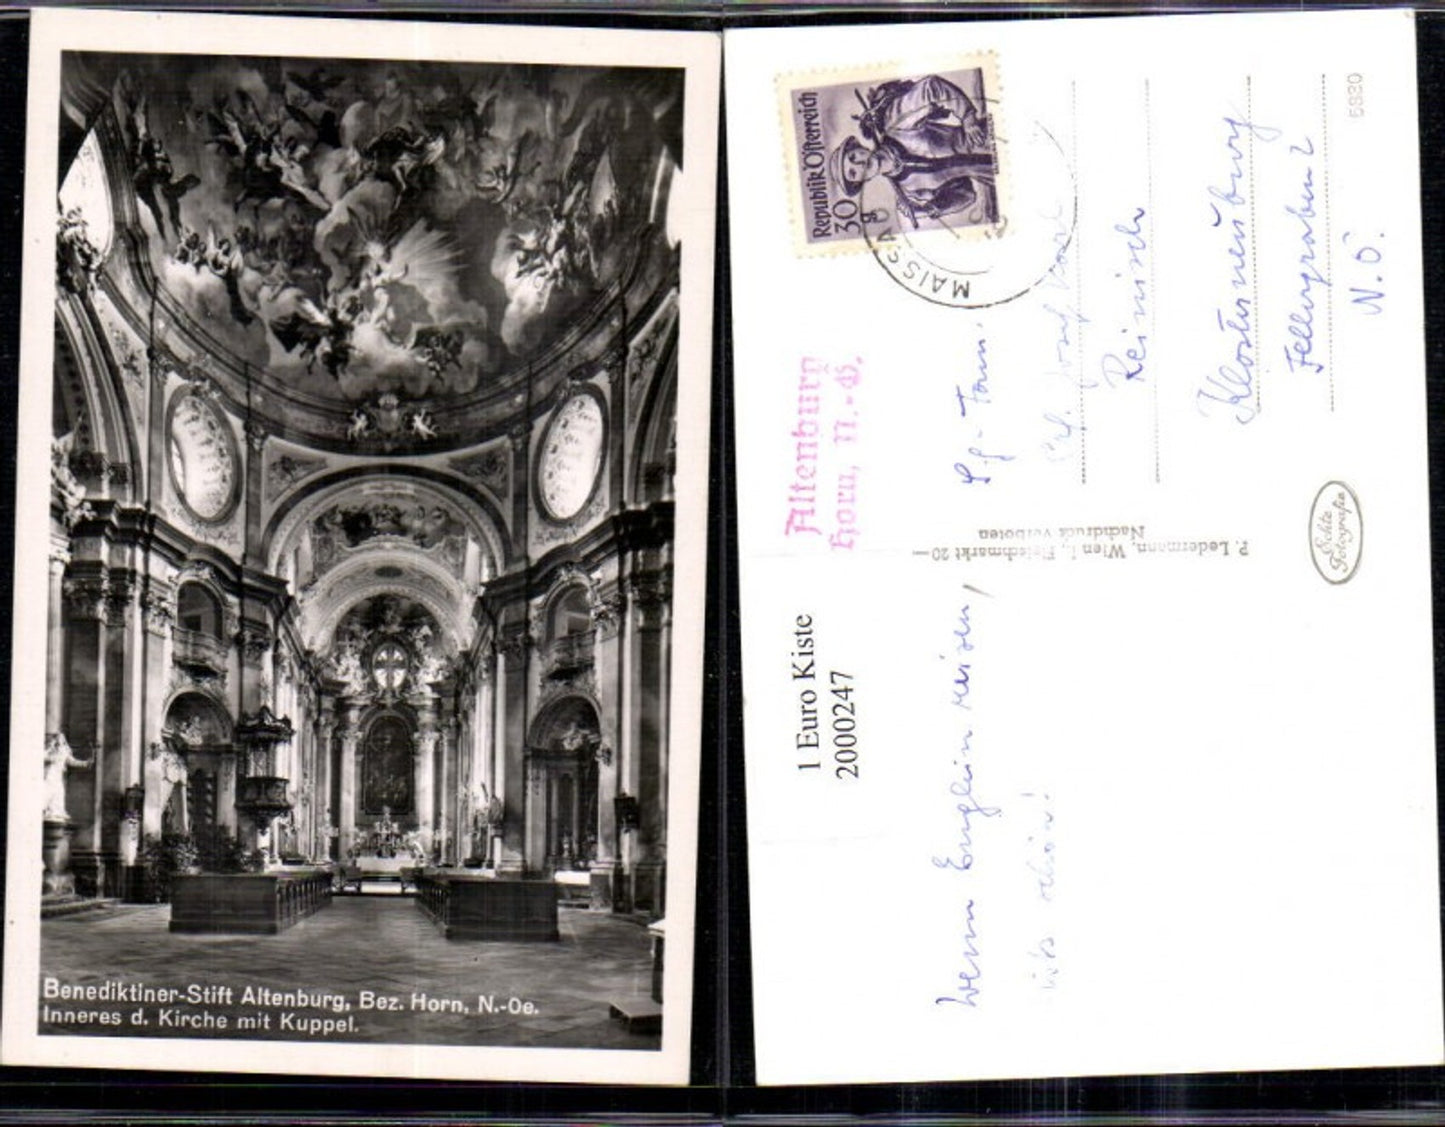 Benediktiner-Stift Altenburg, Bez. Horn, N.-Oe.
Inneres d. Kirche mit Kuppel.
Republik Österreich
30
MAISSAU
Altenburg
Horn, N.-Ö.
1 Euro Kiste
2000247
Wenn Englein reisen,
wird's schön!
P. Ledermann, Wien I, Fleischmarkt 20
Nachdruck verboten
Echte
Fotografie
Fam.
Josef
Reinisch
Klosterneuburg
2
N.Ö.